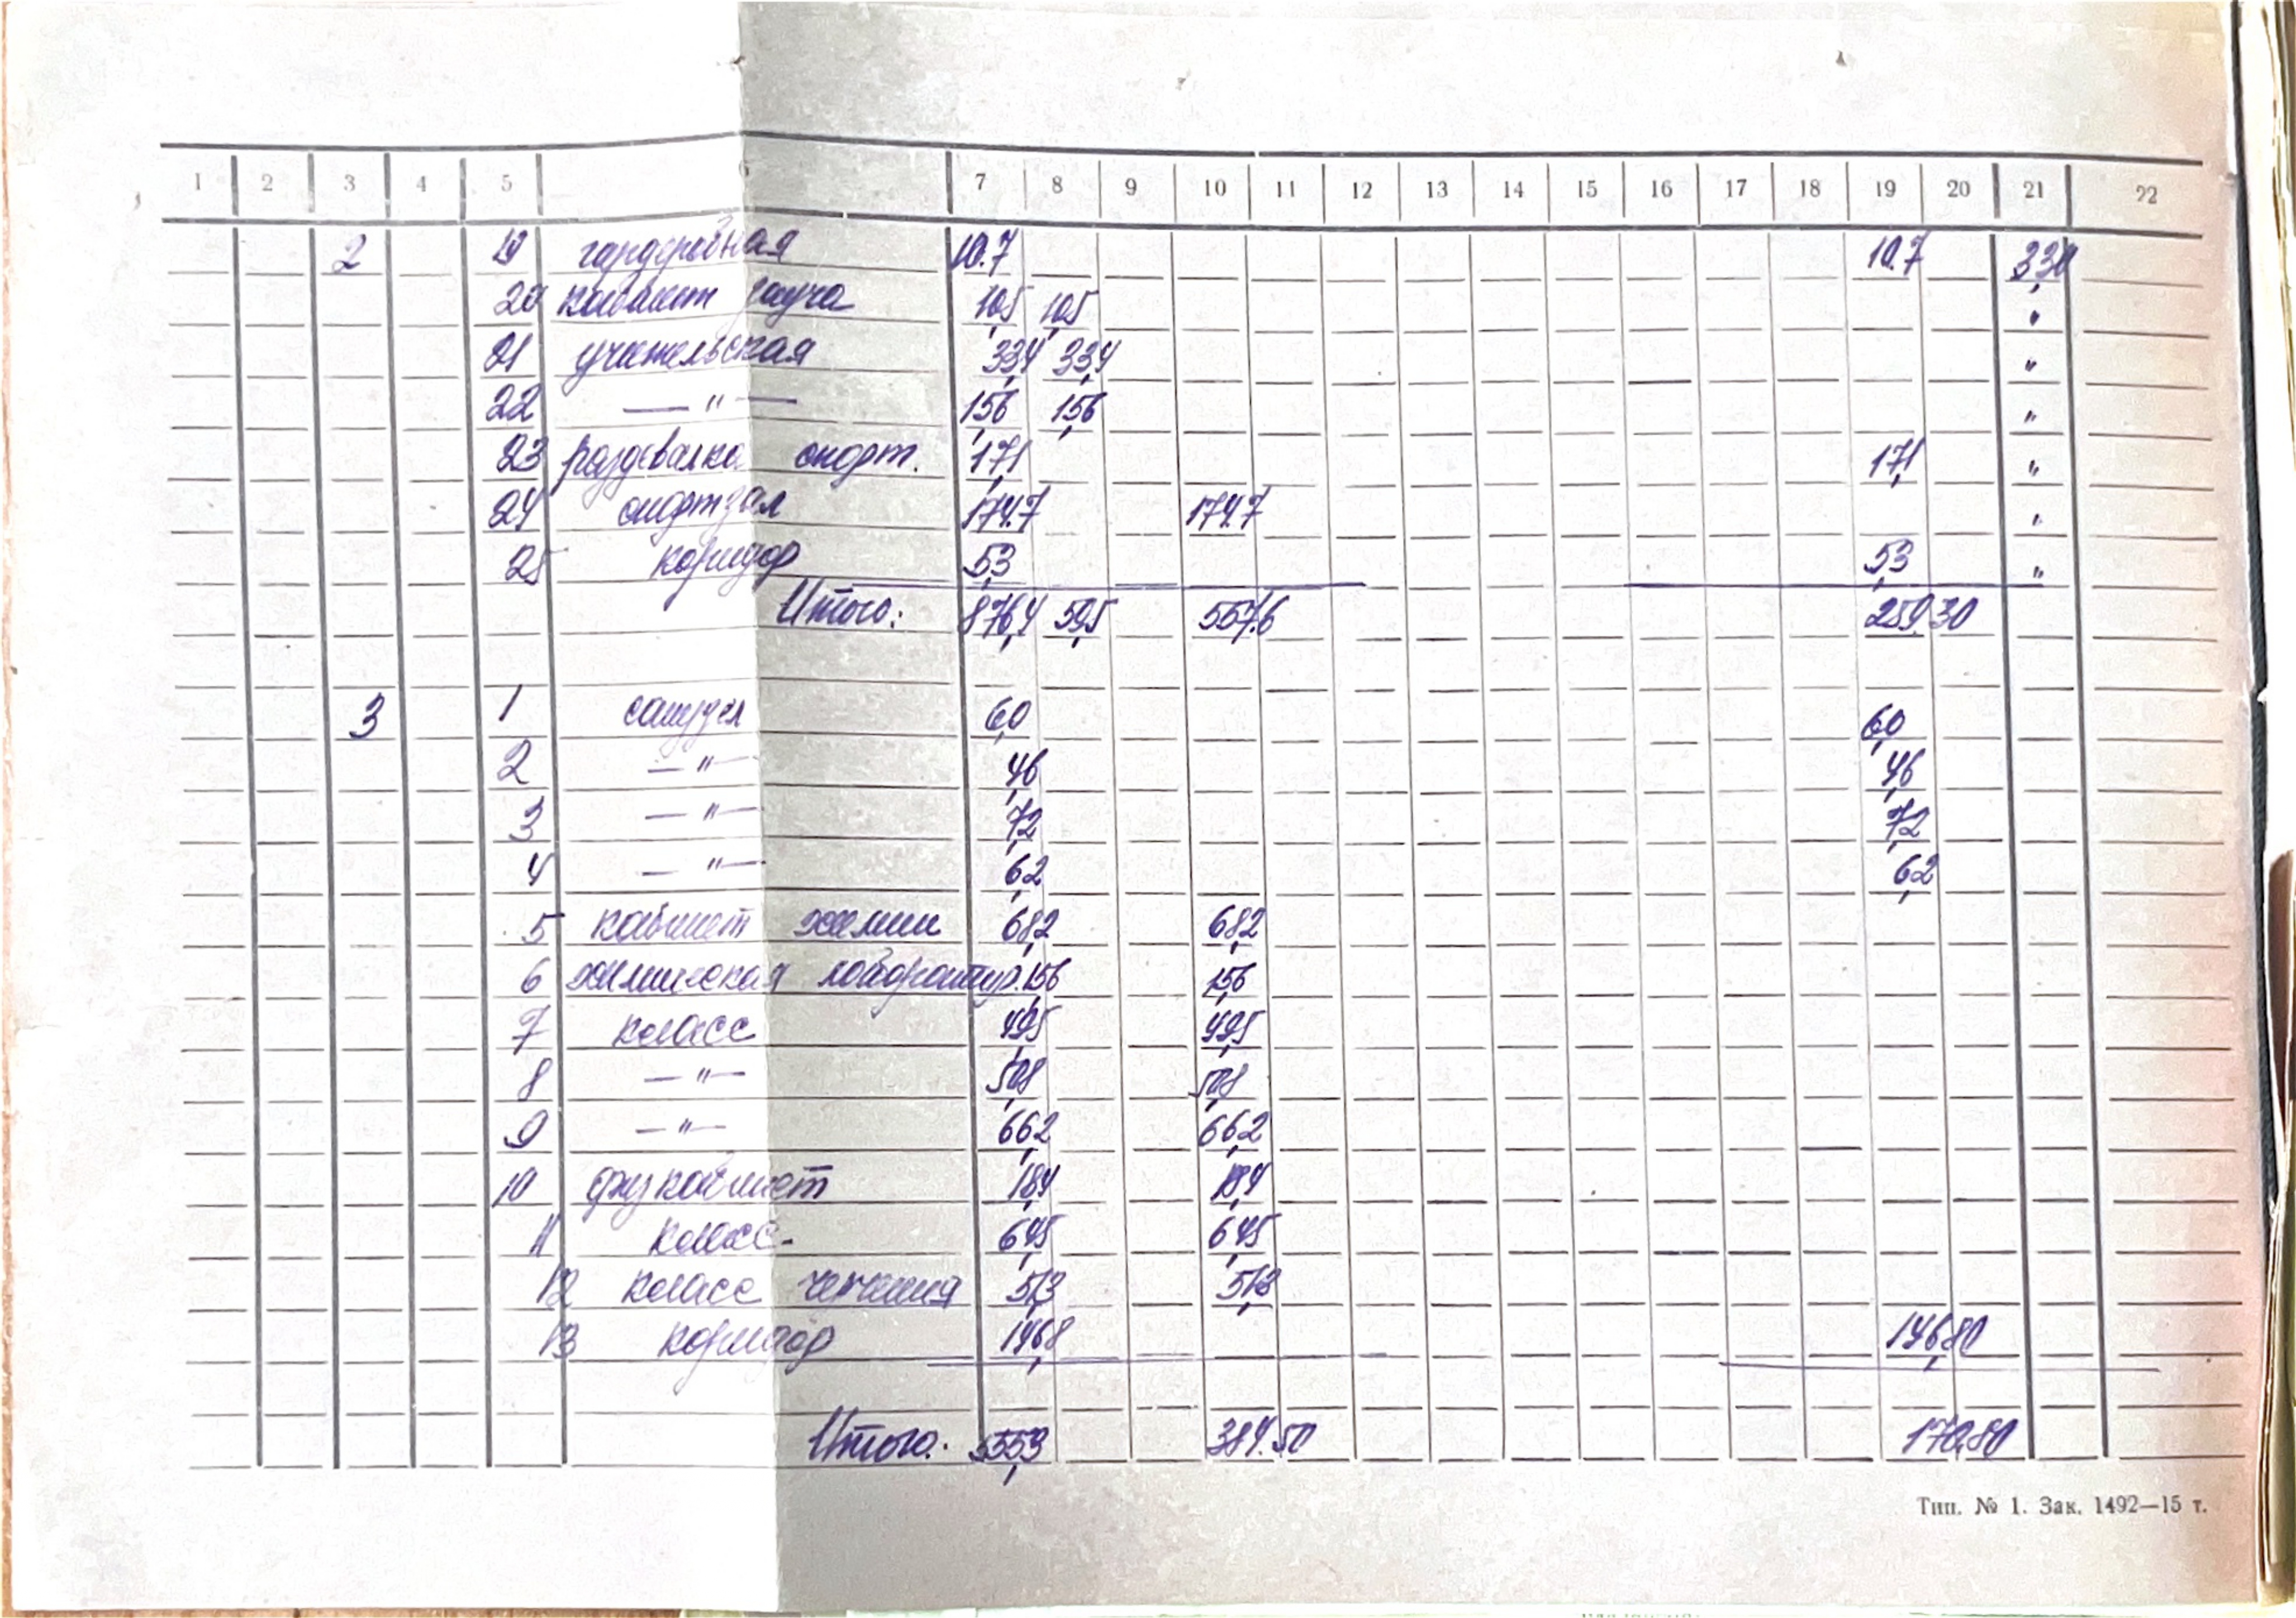 1 2 3 4 5 6 7 8 9 10 11 12 13 14 15 16 17 18 19 20 21 22
2 19 гардеробная 10.7 10.7 3,30
20 кабинет завуча 10,5 10,5 "
21 учительская 33,4 33,4 "
22 — " — 15,6 15,6 "
23 раздевалка спорт. 17,1 17,1 "
24 спортзал 174.7 174.7 "
25 коридор 5,3 5,3 "
Итого: 876,4 59,5 557.6 259.30
3 1 санузел 6,0 6,0
2 — " — 4,6 4,6
3 — " — 7,2 7,2
4 — " — 6,2 6,2
5 кабинет химии 68,2 68,2
6 химическая лаборатор. 15,6 15,6
7 класс 49,5 49,5
8 — " — 50,8 50,8
9 — " — 66,2 66,2
10 физ кабинет 18,4 18,4
11 класс. 64,5 64,5
12 класс черчения 51,3 51,3
13 коридор 146,8 146,80
Итого. 555,3 384.50 170,80
Тип. № 1. Зак. 1492—15 т.